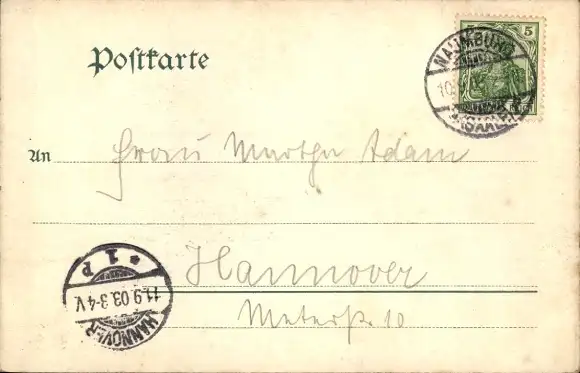 Postkarte
5
NAUMBURG
10.
(SAALE)
An Frau Martha Adam
Hannover
* 1 P
11.9.03.3-4V.
HANNOVER
10